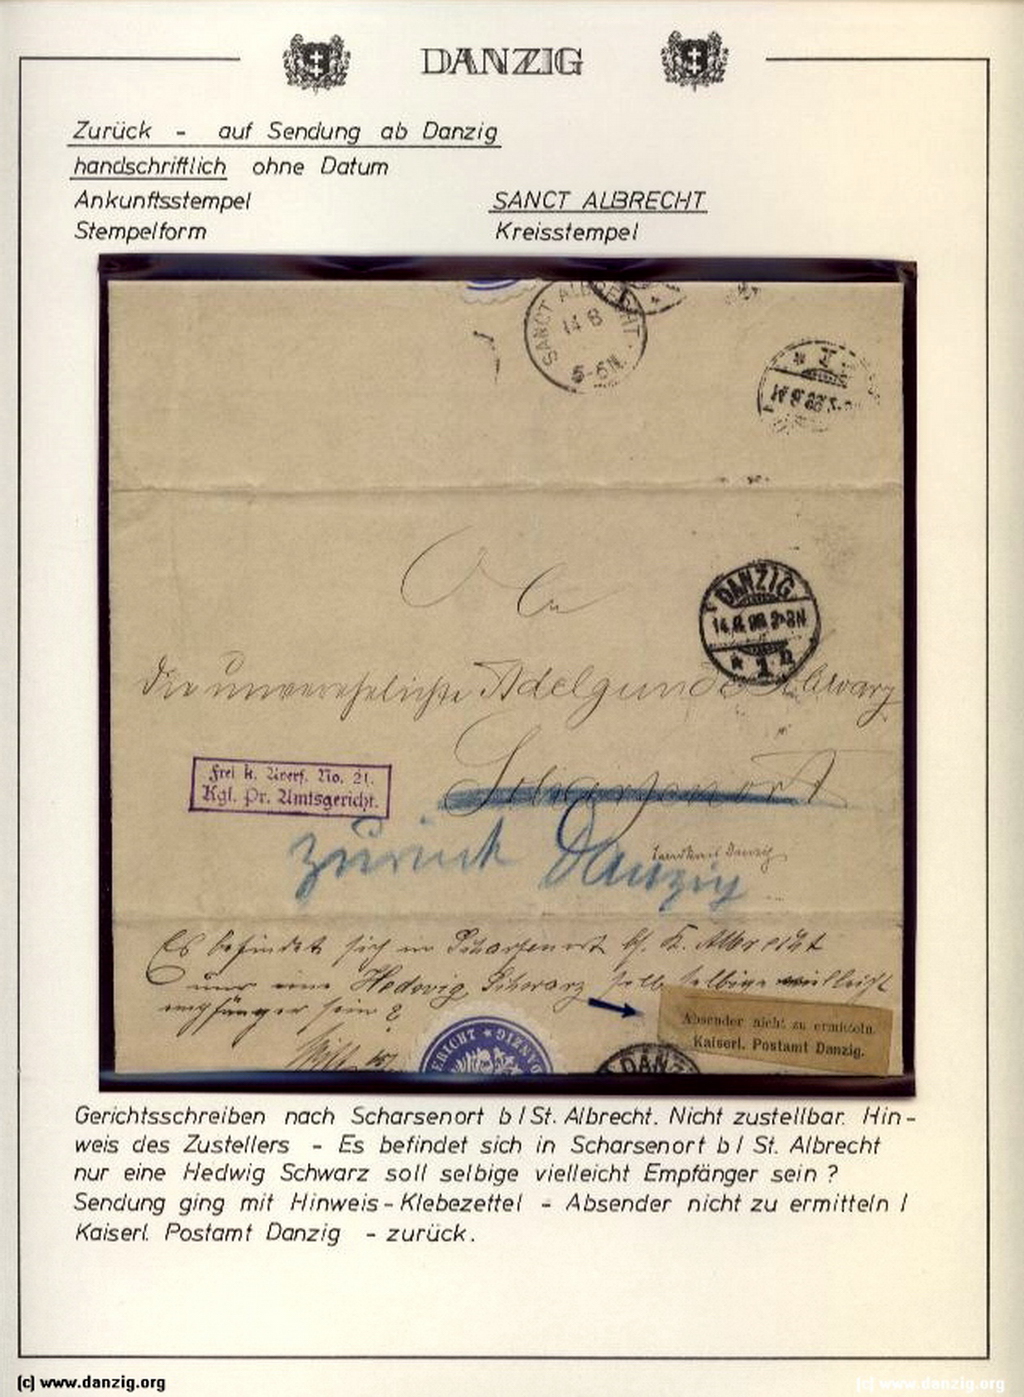 DANZIG
Zurück - auf Sendung ab Danzig
handschriftlich ohne Datum
Ankunftsstempel SANCT ALBRECHT
Stempelform Kreisstempel
SANCT ALBRECHT
14 8
5-6N.
DANZIG
* 1
An
die unverehelichte Adelgunde Schwarz
Scharsenort
Frei lt. Avers. No. 21.
Kgl. Pr. Amtsgericht.
zurück Danzig
Landkreis Danzig
Es befindet sich in Scharsenort b/ St. Albrecht
nur eine Hedwig Schwarz soll selbige vielleicht
empfänger sein?
Absender nicht zu ermitteln.
Kaiserl. Postamt Danzig.
DANZIG
DANZ
Gerichtsschreiben nach Scharsenort b/St. Albrecht. Nicht zustellbar. Hin-
weis des Zustellers - Es befindet sich in Scharsenort b/ St. Albrecht
nur eine Hedwig Schwarz soll selbige vielleicht Empfänger sein ?
Sendung ging mit Hinweis-Klebezettel - Absender nicht zu ermitteln /
Kaiserl. Postamt Danzig - zurück.
(c) www.danzig.org
(c) www.danzig.org